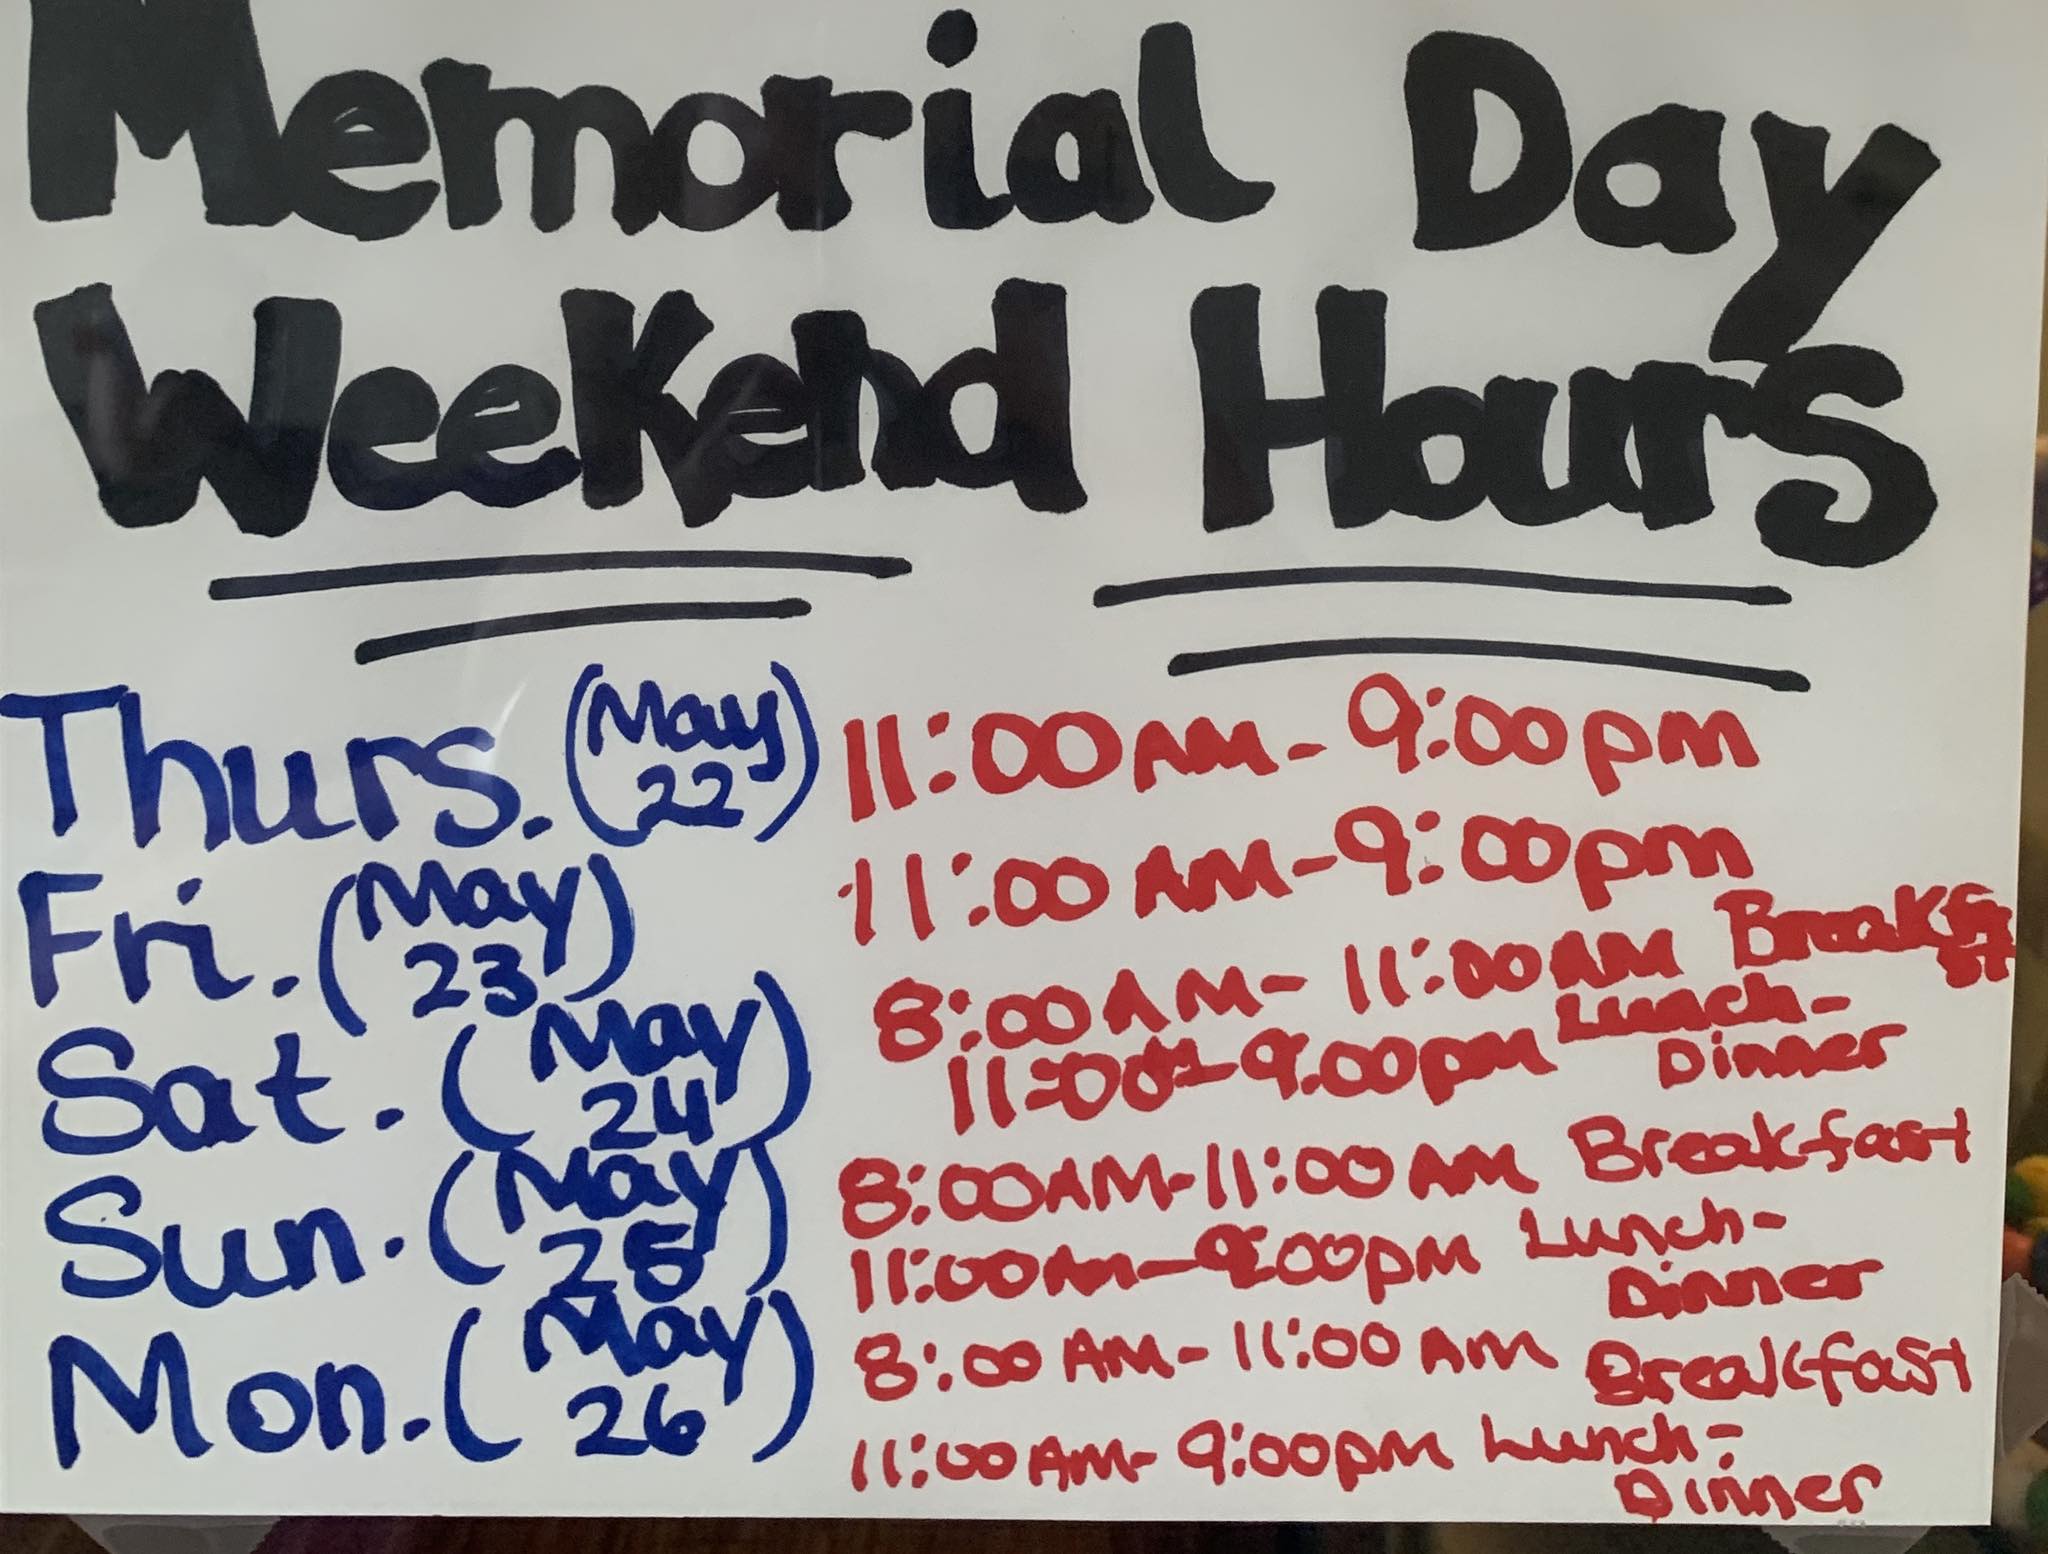 Memorial Day
Weekend Hours
Thurs. (May 22) 11:00AM - 9:00pm
Fri. (May 23) 11:00 AM - 9:00pm
Sat. (May 24) 8:00AM - 11:00AM Breakfast
11:00 - 9:00pm Lunch-Dinner
Sun. (May 25) 8:00AM - 11:00 AM Breakfast
11:00AM - 9:00pm Lunch-Dinner
Mon. (May 26) 8:00 AM - 11:00 AM Breakfast
11:00 AM - 9:00pm Lunch-Dinner